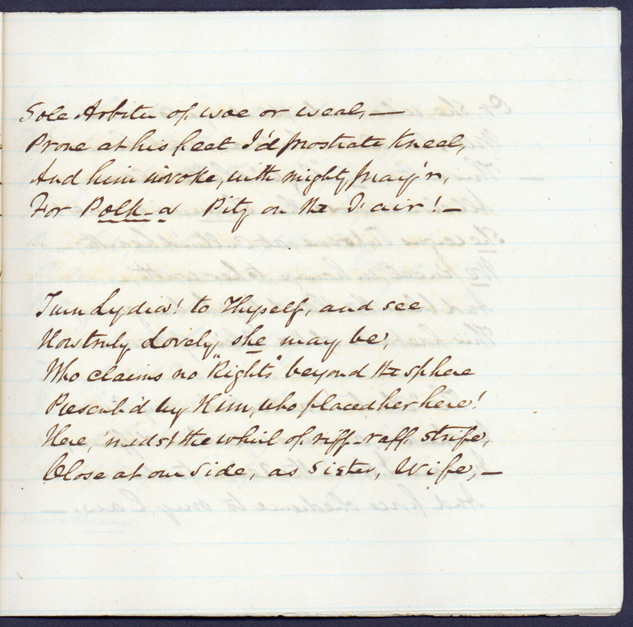 Sole Arbiter of woe or weal,—
Prone at his feet I'd prostrate kneel,
And him invoke, with mighty pray'r,
For Polk-a Pity on the Fair!—
Turn Lydia! to Thyself, and see
How truly Lovely she may be,
Who claims no "Rights" beyond the sphere
Prescrib'd by Him, who placed her here!
Here, 'midst the whirl of riff-raff strife,
Close at our side, as Sister, Wife,—